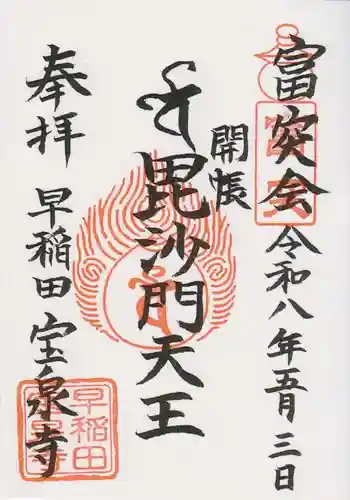 富突会 令和八年五月三日
開帳
毘沙門天王
奉拝 早稲田 宝泉寺
富突
早稲田
宝泉寺